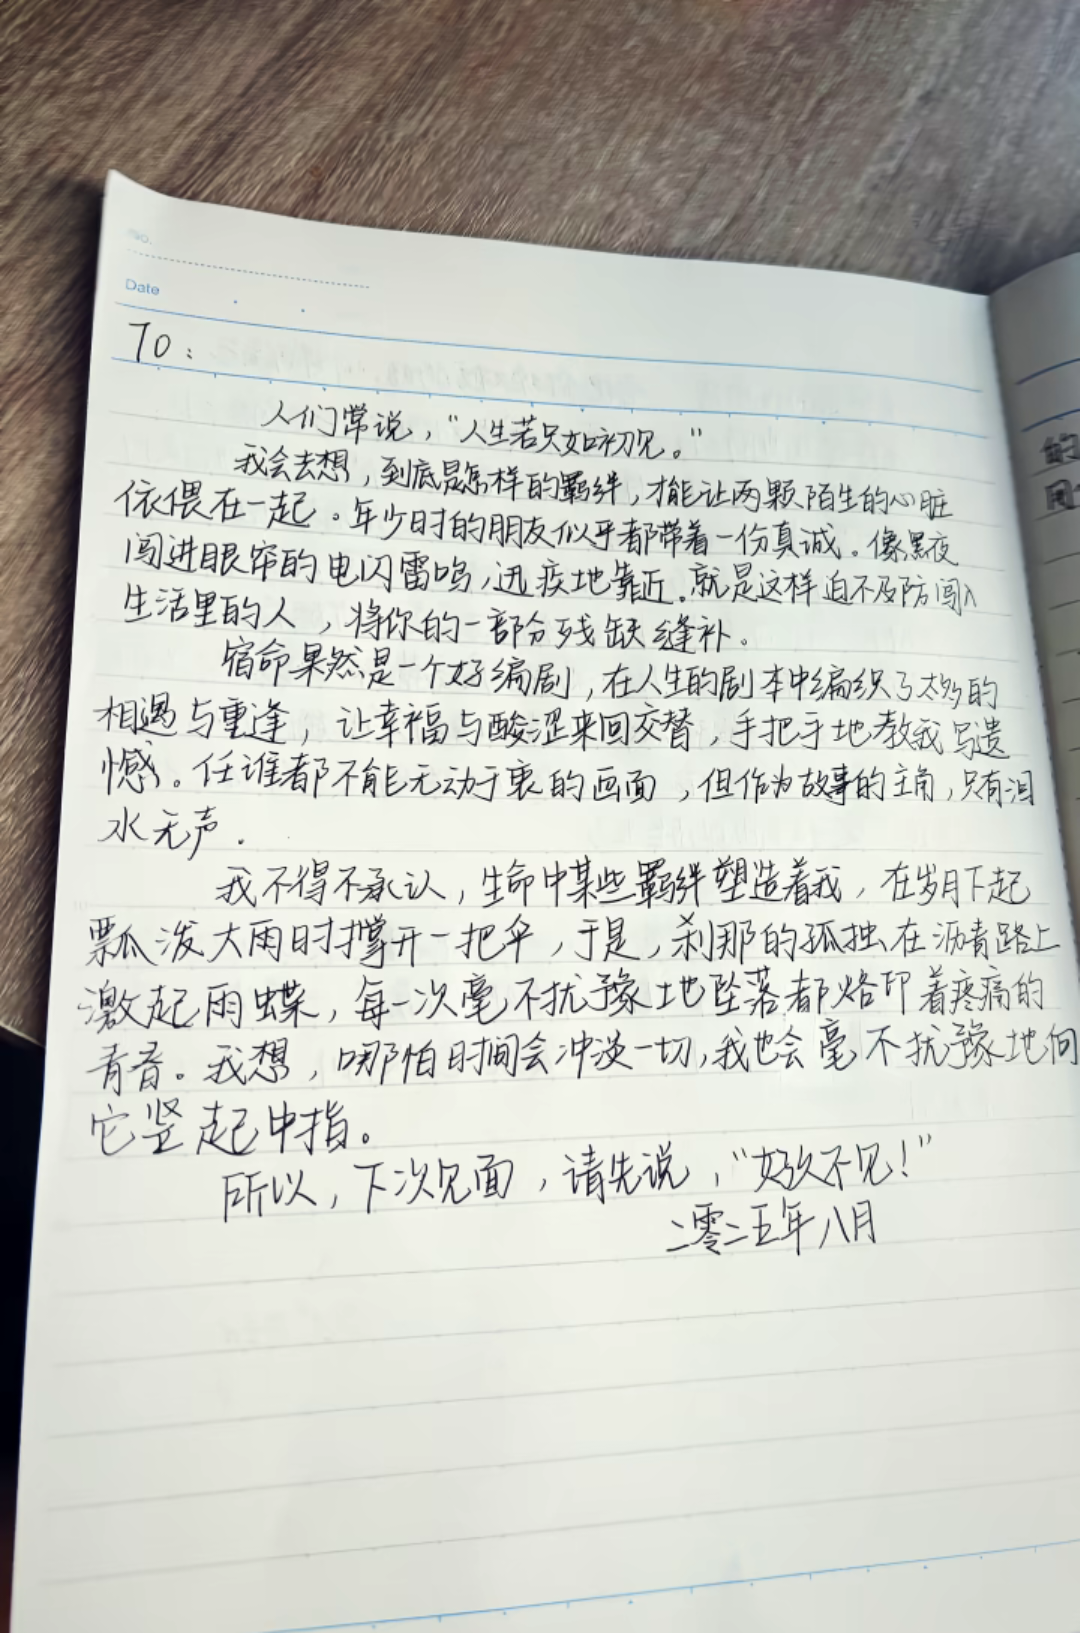 No.
Date
TO：
人们常说，“人生若只如初见。”
我会去想，到底是怎样的羁绊，才能让两颗陌生的心脏
依偎在一起。年少时的朋友似乎都带着一份真诚。像黑夜
闯进眼帘的电闪雷鸣，迅疾地靠近。就是这样迫不及防闯入
生活里的人，将你的一部分残缺缝补。
宿命果然是一个好编剧，在人生的剧本中编织了太多的
相遇与重逢，让幸福与酸涩来回交替，手把手地教我写遗
憾。任谁都不能无动于衷的画面，但作为故事的主角，只有泪
水无声.
我不得不承认，生命中某些羁绊塑造着我，在岁月下起
瓢泼大雨时撑开一把伞，于是，刹那的孤独在沥青路上
激起雨蝶，每一次毫不扰豫地坠落都烙印着疼痛的
青春。我想，哪怕时间会冲淡一切，我也会毫不扰豫地向
它竖起中指。
所以，下次见面，请先说，“好久不见！”
二零二五年八月
的
用